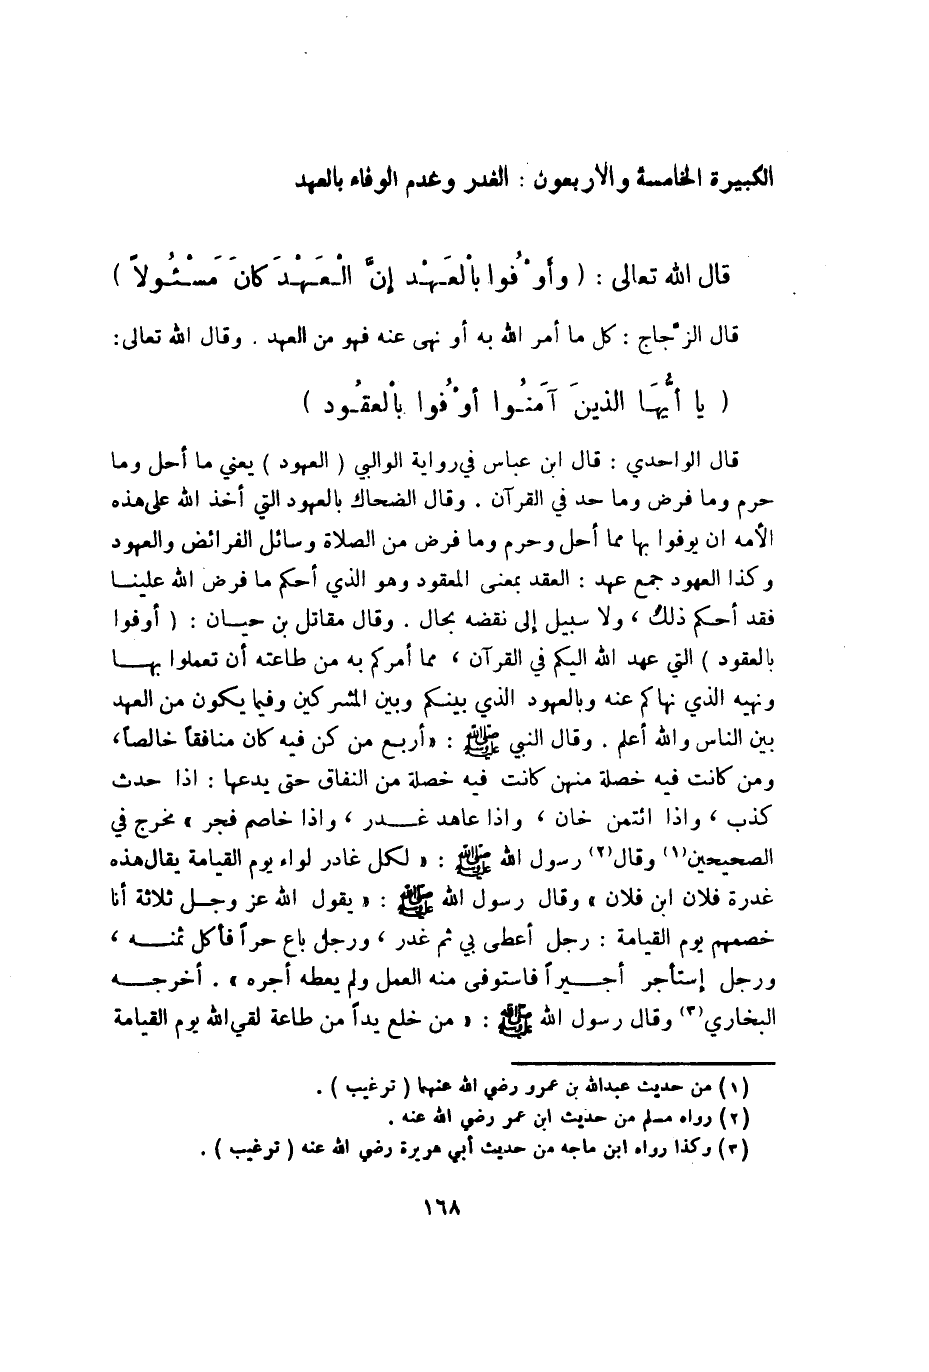 الكبيرة الخامسة والاربعون : الغدر وعدم الوفاء بالعهد
قال الله تعالى : ( وأَوْفُوا بالْعَهْدِ إنَّ الْعَهْدَ كانَ مَسْئُولاً )
قال الزّجاج : كل ما أمر الله به أو نهى عنه فهو من العهد . وقال الله تعالى:
( يا أيُّهَا الذينَ آمَنُوا أوْفُوا بالْعقُود )
قال الواحدي : قال ابن عباس في رواية الوالبي ( العهود ) يعني ما أحل وما
حرم وما فرض وما حد في القرآن . وقال الضحاك بالعهود التي أخذ الله على هذه
الأمه ان يوفوا بها مما أحل وحرم وما فرض من الصلاة وسائل الفرائض والعهود
وكذا العهود جمع عهد : العقد بمعنى المعقود وهو الذي أحكم ما فرض الله علينا
فقد أحكم ذلك ، ولا سبيل إلى نقضه بحال . وقال مقاتل بن حيان : ( أوفوا
بالعقود ) التي عهد الله اليكم في القرآن ، مما أمركم به من طاعته أن تعملوا بها
ونهيه الذي نهاكم عنه وبالعهود الذي بينكم وبين المشركين وفيما يكون من العهد
بين الناس والله أعلم . وقال النبي ﷺ : «أربع من كن فيه كان منافقاً خالصاً،
ومن كانت فيه خصلة منهن كانت فيه خصلة من النفاق حتى يدعها : اذا حدث
كذب ، واذا ائتمن خان ، واذا عاهد غدر ، واذا خاصم فجر » مخرج في
الصحيحين(١) وقال(٢) رسول الله ﷺ : « لكل غادر لواء يوم القيامة يقال هذه
غدرة فلان ابن فلان » وقال رسول الله ﷺ : « يقول الله عز وجل ثلاثة أنا
خصمهم يوم القيامة : رجل أعطى بي ثم غدر ، ورجل باع حراً فأكل ثمنه ،
ورجل إستأجر أجيراً فاستوفى منه العمل ولم يعطه أجره » . أخرجه
البخاري(٣) وقال رسول الله ﷺ : « من خلع يداً من طاعة لقي الله يوم القيامة
(١) من حديث عبدالله بن عمرو رضي الله عنهما ( ترغيب ) .
(٢) رواه مسلم من حديث ابن عمر رضي الله عنه .
(٣) وكذا رواه ابن ماجه من حديث أبي هريرة رضي الله عنه ( ترغيب ) .
١٦٨